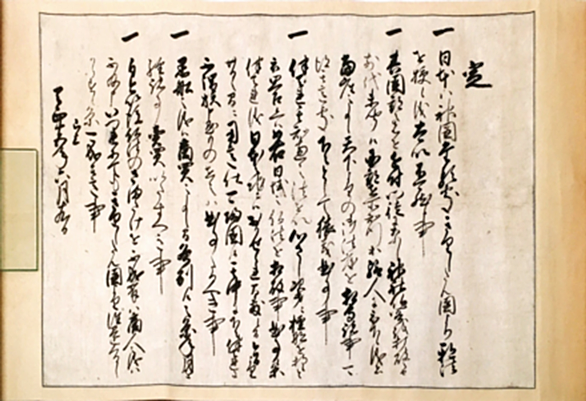 定
一 日本ハ神国たる処きりしたん国より邪法
を授候儀太以不可然候事
一 其国郡之者を近付門徒になし神社仏閣を打破之由
前代未聞候国郡在所知行等給人に被下候儀者
当座之事候天下よりの御法度を相守諸事可
得其意処下々として猥義曲事事
一 伴天連其知恵之法を以心さし次第ニ檀那を持候と
被思召候ヘハ如右日域之仏法を相破事曲事候条
伴天連儀日本之地ニハおかせられ間敷候間今日より
廿日之間ニ用意仕可帰国候其中に下々伴天連
に不謂族申懸もの在之ハ曲事たるへき事
一 黒船之儀ハ商買之事候間各別候之条年月を
経諸事売買いたすへき事
一 自今以後仏法のさまたけを不成輩ハ商人之儀ハ
不及申いつれにてもきりしたん国より往還くるし
からす候条可成其意事
已上
天正十五年六月十九日